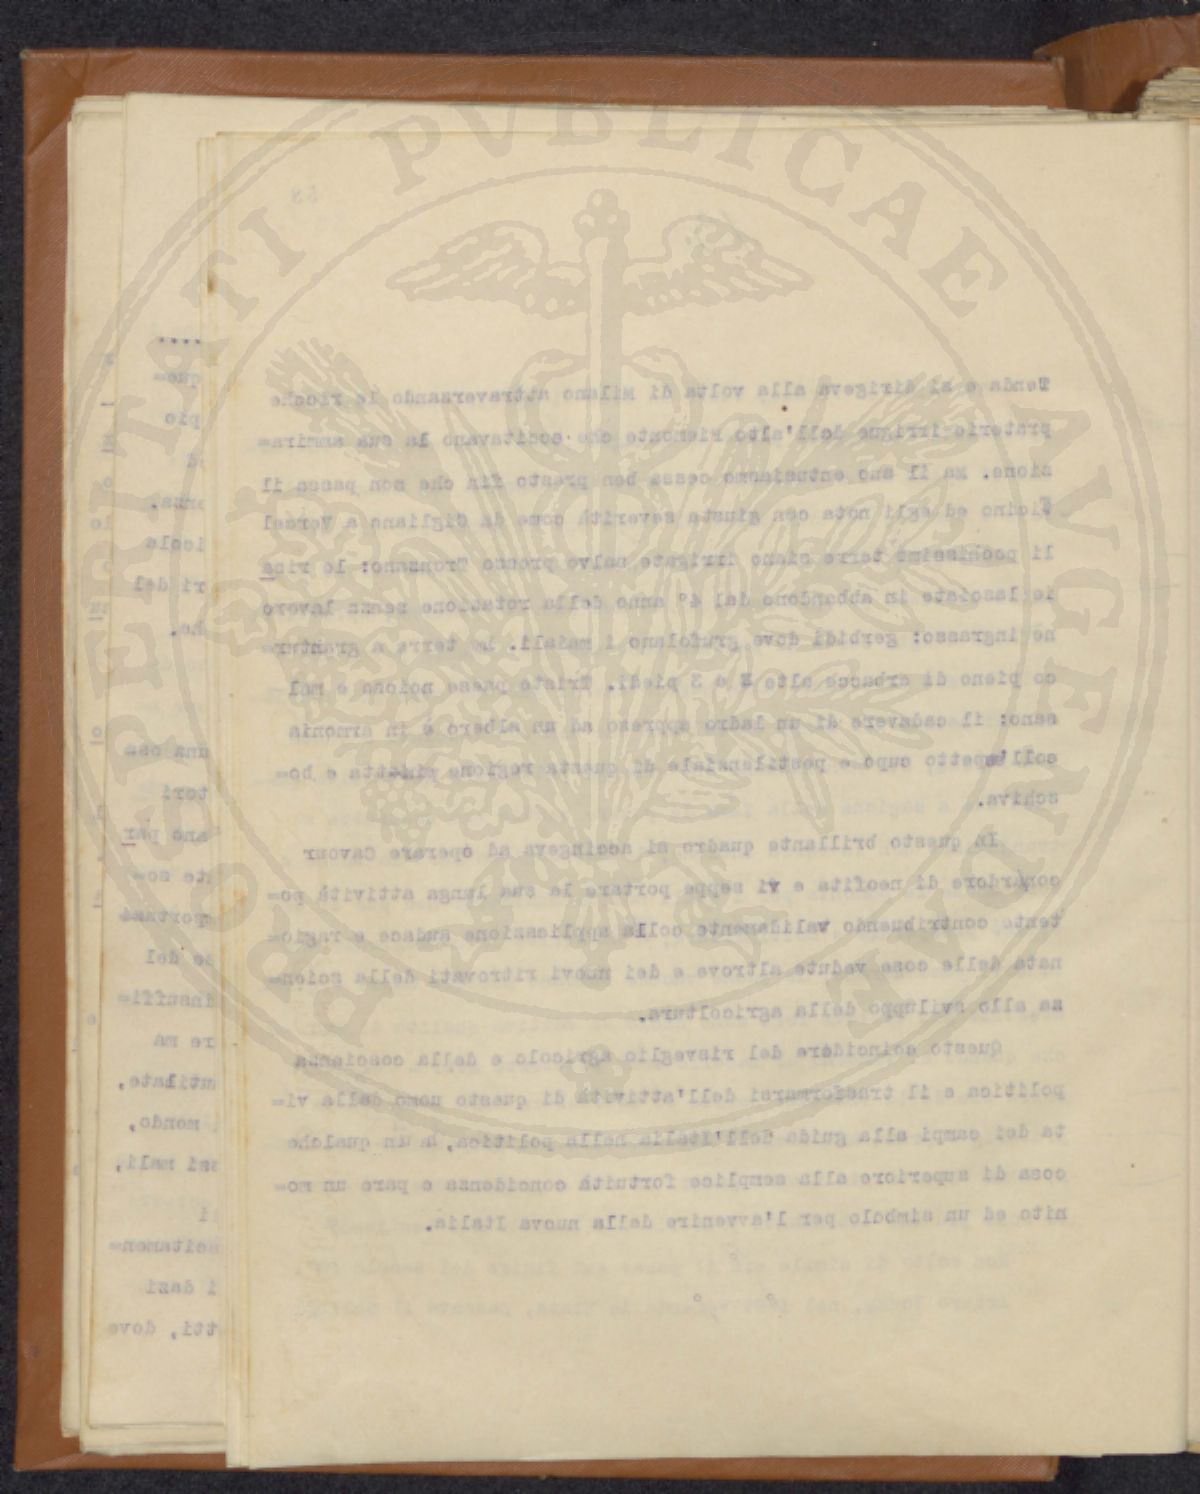 58
Tenda e si dirigeva alla volta di Milano attraversando le ricche
praterie irrigue dell'alto Piemonte che eccitavano la sua ammira=
zione. Ma il suo entusiasmo cessa ben presto fin che non passa il
Ticino ed egli nota con giusta severità come da Cigliano a Vercel
li pochissime terre siano irrigate salvo presso Tronzano: le risa
ie lasciate in abbandono dal 4° anno della rotazione senza lavoro
ne ingrasso: gerbidi dove grufolano i maiali. La terra a grantur=
co pieno di erbacce alte 2 o 3 piedi. Triste paese noioso e mal
sano: il cadavere di un ladro appreso ad un albero è in armonia
coll'aspetto cupo e pestilenziale di questa regione piatta e bo=
schiva.
In questo brillante quadro si accingeva ad operare Cavour
con ardore di neofita e vi seppe portare la sua lunga attività po=
tente contribuendo validamente colla applicazione audace e ragio=
nata delle cose vedute altrove e dei nuovi ritrovati della scien=
za allo sviluppo della agricoltura.
Questo coincidere del risveglio agricolo e della coscienza
politica e il trasformarsi dell'attività di questo uomo dalla vi=
ta dei campi alla guida dell'Italia nella politica, ha un qualche
cosa di superiore alla semplice fortuità concidenza e pare un mo=
nito ed un simbolo per l'avvenire della nuova Italia.
....
que=
pio
enza.
icola
ri del
he.
una osa=
tori
ano per
nte so=
portazi
se del
insuffi=
re ma
mutilate,
mondo,
ssi mali,
i
scitamen=
i dazi
tti, dove
PROSPERITATI PVBLICAE AVGENDAE